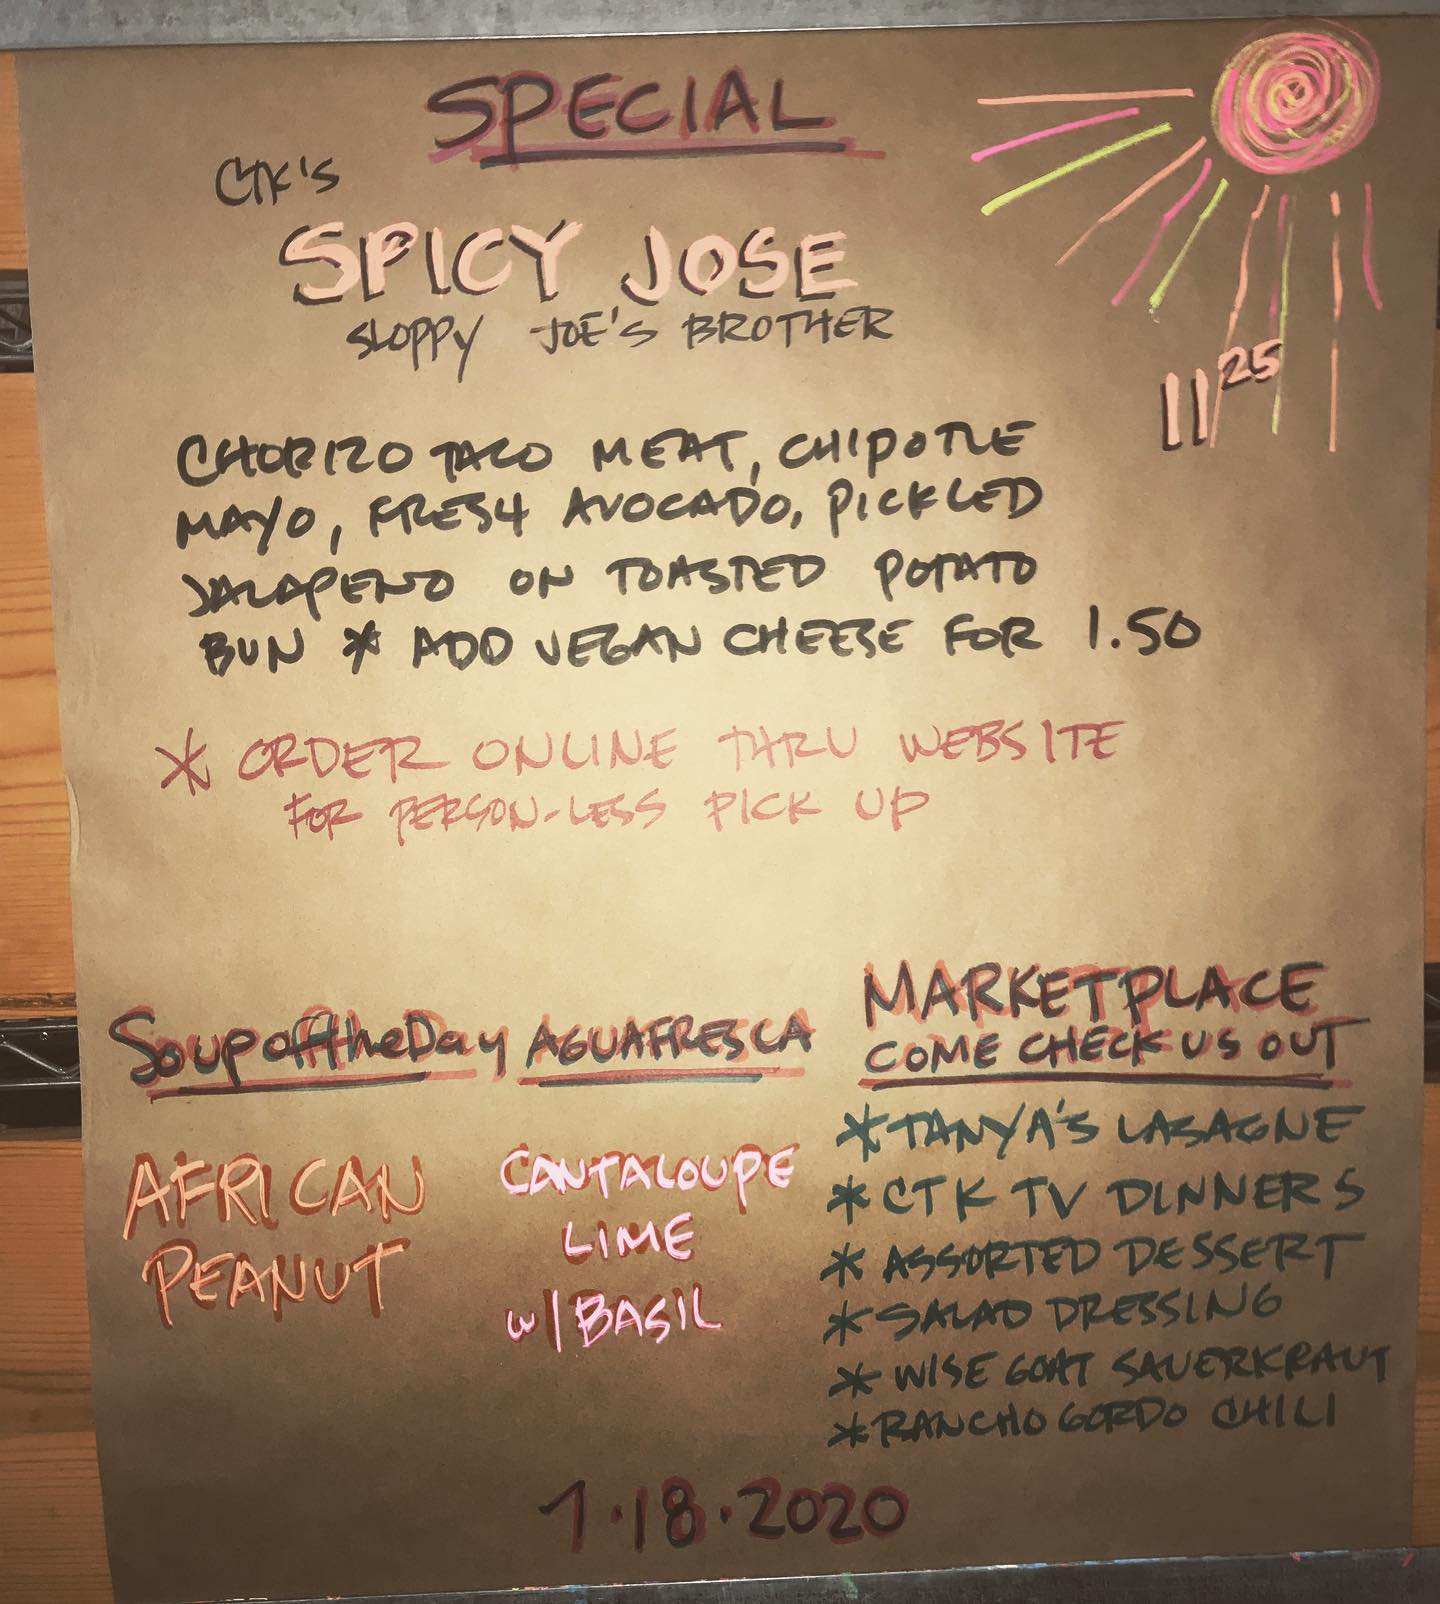 SPECIAL
CTK'S
SPICY JOSE
SLOPPY JOE'S BROTHER
11 25
CHORIZO TACO MEAT, CHIPOTLE
MAYO, FRESH AVOCADO, PICKLED
JALAPENO ON TOASTED POTATO
BUN * ADD VEGAN CHEESE FOR 1.50
* ORDER ONLINE THRU WEBSITE
FOR PERSON-LESS PICK UP
Soup of the Day
AFRICAN
PEANUT
AGUA FRESCA
CANTALOUPE
LIME
W/BASIL
MARKETPLACE
COME CHECK US OUT
* TANYA'S LASAGNE
* CTK TV DINNERS
* ASSORTED DESSERT
* SALAD DRESSING
* WISE GOAT SAUERKRAUT
* RANCHO GORDO CHILI
7.18.2020